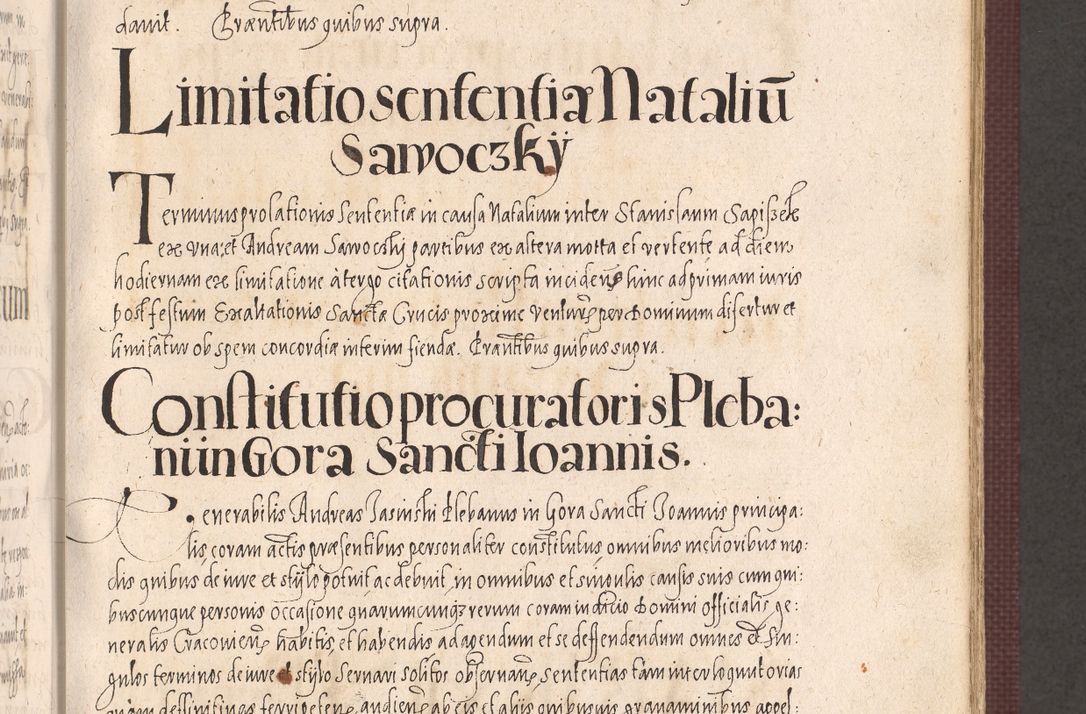 davit. Præntibus quibus supra.
Limitatio sententiæ Nataliū
Sawoczkÿ
Terminus prolationis sententiæ in causa Natalium inter Stanislaum Sapissek
ex vna, et Andream Sawocski partibus ex altera motta et vertente ad diem
hodiernam ex limitatione à tergo citationis scripta inciden̄ hinc ad primam iuris
post festum Exaltationis Sanctæ Crucis proxime ventur̄ per Dominum disertur et
limitatur ob spem concordiæ interim fiendæ. Præntibus quibus supra.
Constitutio procuratoris Pleba:
ni in Gora Sancti Ioannis.
Venerabilis Andreas Jasinski Plebanus in Gora Sancti Joannis principa:
lis coram actis præsentibus personaliter constitutus omnibus melioribus mo:
dis quibus de iure et stylo potuit ac debuit in omnibus et singulis causis suis cum qui:
buscunque personis occasione quarumcunq3 rerum coram iudicio Domini officialis ge:
neralis Cracovien̄ habitis, et habendis ad agendum et se deffendendum omnes et sin:
gulos terminos de iure et stylo servari solitos observan̄, sententias tam interloquutorias
quàm deffinitivas ferri peten̄, audien̄ ab eis et aliis quibusuis grauaminibus appel: